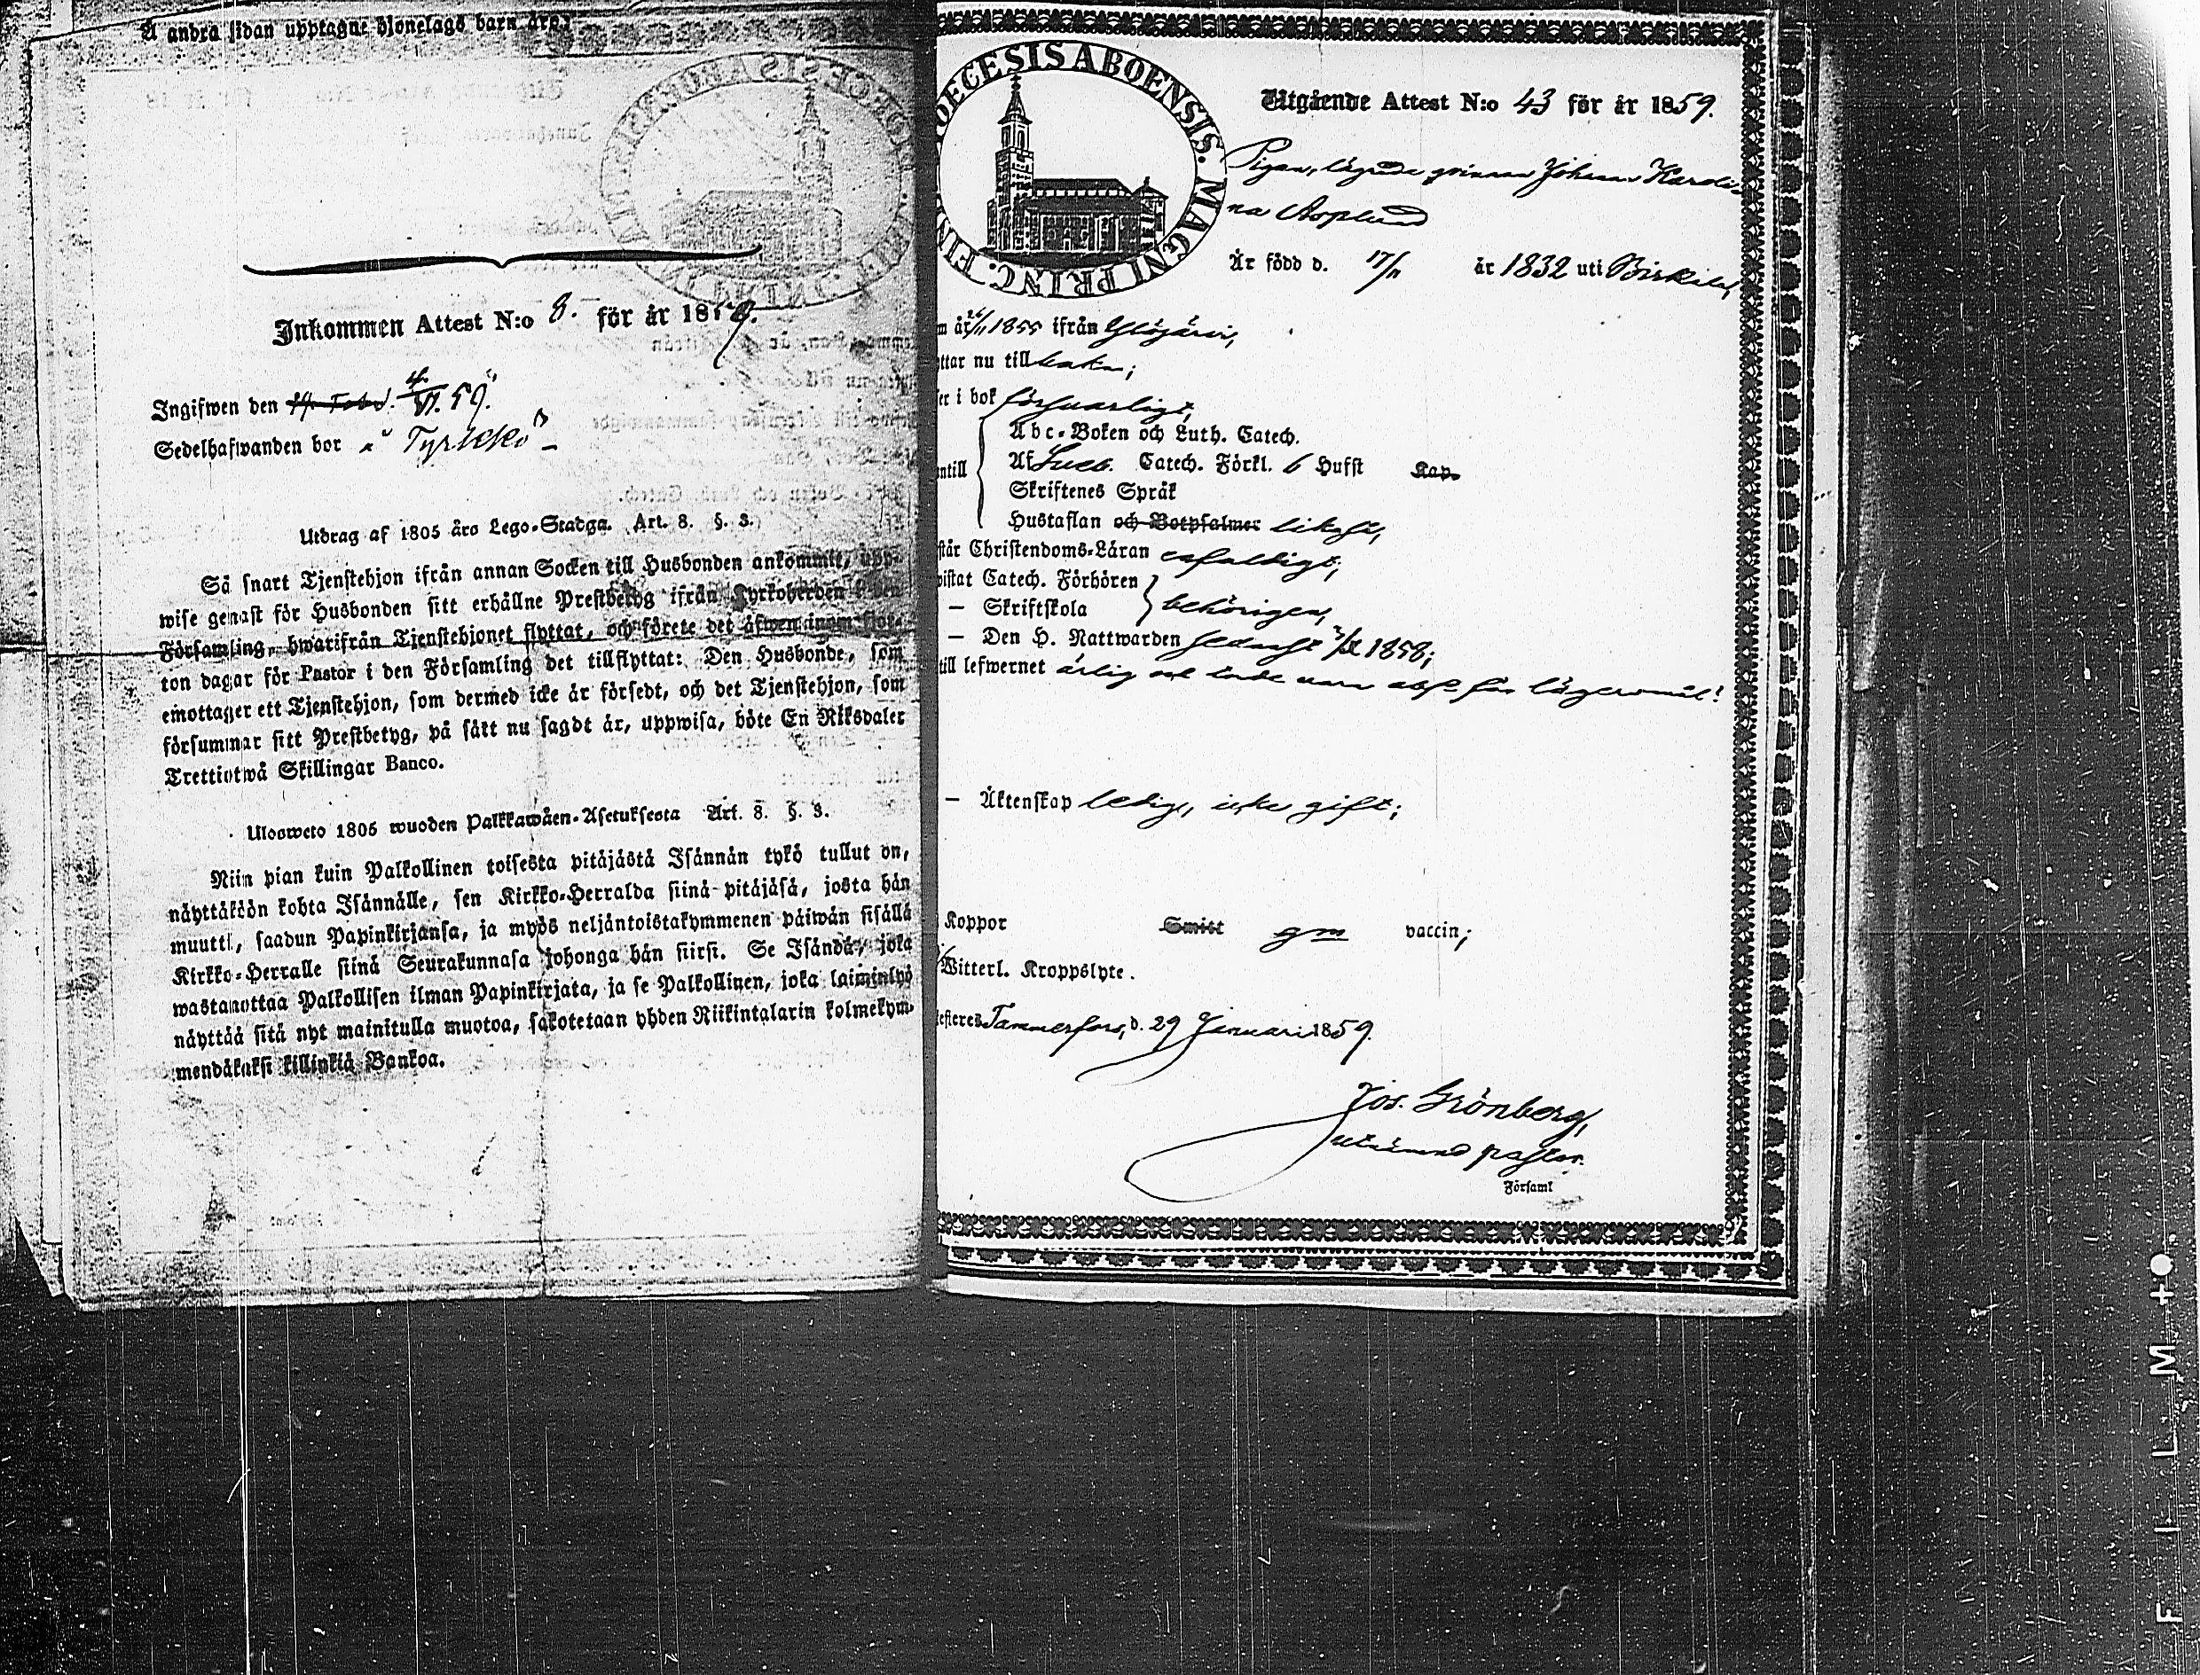 Å andra sidan upptagne hjonelags barn äro:
Inkommen Attest N:o 8. för år 1859.
Ingifwen den 4/VI. 59.
Sedelhafwanden bor "Tyrkkö"
Utdrag af 1805 års Lego-Stadga. Art. 8. §. 3.
Så snart Tjenstehjon ifrån annan Socken till Husbonden ankommit, upp-
wise genast för Husbonden sitt erhållne Prestbetyg ifrån Kyrkoherden i den
Församling, hwarifrån Tjenstehjonet flyttat, och förete det äfwen inom fjor-
ton dagar för Pastor i den Församling det tillflyttat: Den Husbonde, som
emottager ett Tjenstehjon, som dermed icke är försedt, och det Tjenstehjon, som
försummar sitt Prestbetyg, på sätt nu sagdt är, uppwisa, böte En Riksdaler
Trettiotwå Skillingar Banco.
Ulosweto 1805 wuoden Palkkawäen-Asetuksesta Art. 8. §. 3.
Niin pian kuin Palkollinen toisesta pitäjästä Isännän tykö tullut on,
näyttäköön kohta Isännälle, sen Kirkko-Herralda siinä pitäjäsä, josta hän
muutti, saadun Papinkirjansa, ja myös neljäntoistakymmenen päiwän sisällä
Kirkko-Herralle siinä Seurakunnasa johonga hän siirsi. Se Isändä, joka
wastanottaa Palkollisen ilman Papinkirjata, ja se Palkollinen, joka laiminlyö
näyttää sitä nyt mainitulla muotoa, sakotetaan yhden Riikintalarin kolmekym-
mendäkaksi killinkiä Bankoa.
DIOECESIS ABOENSIS. MAGNI PRINC. FIN
Utgående Attest N:o 43 för år 1859.
Pigan, lägrade qvinnan Johanna Karoli-
na Asplund
Är född d. 17/11 år 1832 uti Birkala,
m år 1855 ifrån Ylöjärvi,
yttar nu tillbaka;
er i bok försvarligt,
Abc-Boken och Luth. Catech.
ntill Af Sveb. Catech. Förkl. 6 Hufst Kap.
Skriftenes Språk
Hustaflan och Botpsalmer likaså,
står Christendoms-Läran enfaldigt;
vistat Catech. Förhören
— Skriftskola behörigen,
— Den H. Nattwarden sednast 1858;
till lefwernet ärlig och lärde vara abs. för lägersmål!
— Äktenskap ledig, icke gift;
Koppor Smitt gm vaccin;
Witterl. Kroppslyte.
efteres Tammerfors, d. 29 Januari 1859.
Jos. Grönberg,
utnämnd pastor.
Församl
FILM